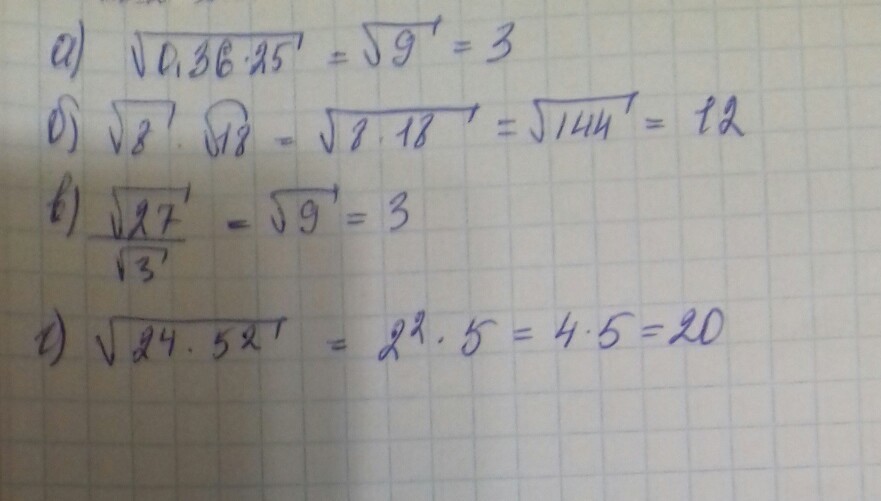 а) √0,36·25 = √9 = 3
б) √8 · √18 = √8·18 = √144 = 12
в) √27/√3 = √9 = 3
г) √24·52 = 2²·5 = 4·5 = 20